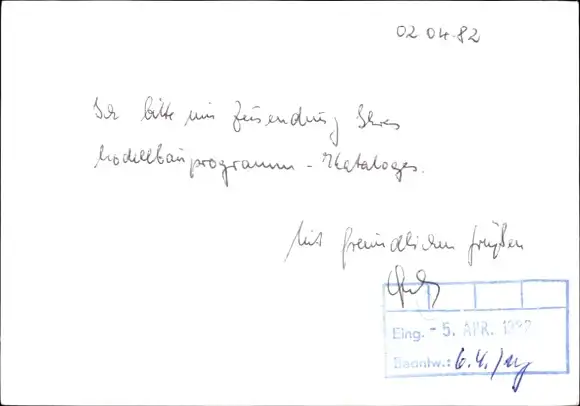 02 04.82
Ich bitte um Zusendung Ihres
Modellbauprogramm-Kataloges.
Mit freundlichen Grüßen
Eing. - 5. APR. 1982
Beantw.: 6.4./